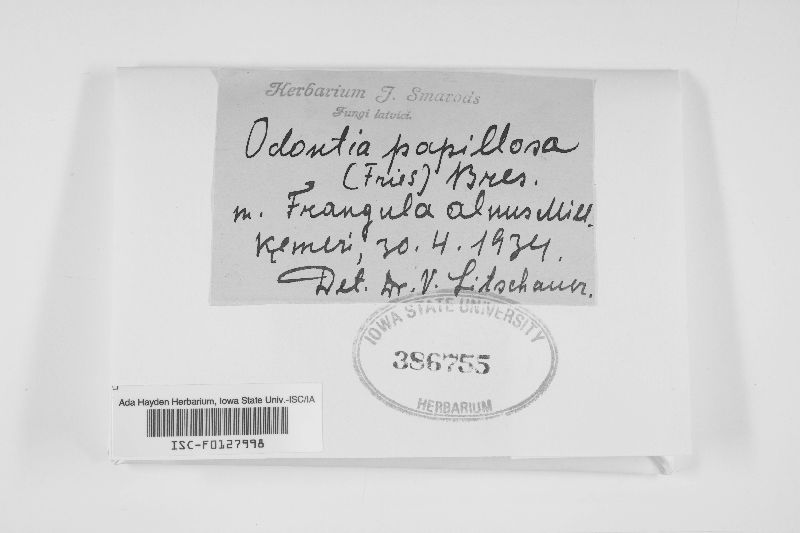 Herbarium J. Smarods
Fungi latvici.
Odontia papillosa
(Fries) Bres.
m. Frangula alnus Mill.
Ķemeri, 30.4.1934.
Det. Dr. V. Litschauer.
IOWA STATE UNIVERSITY
386755
HERBARIUM
Ada Hayden Herbarium, Iowa State Univ.-ISC/IA
ISC-F0127998